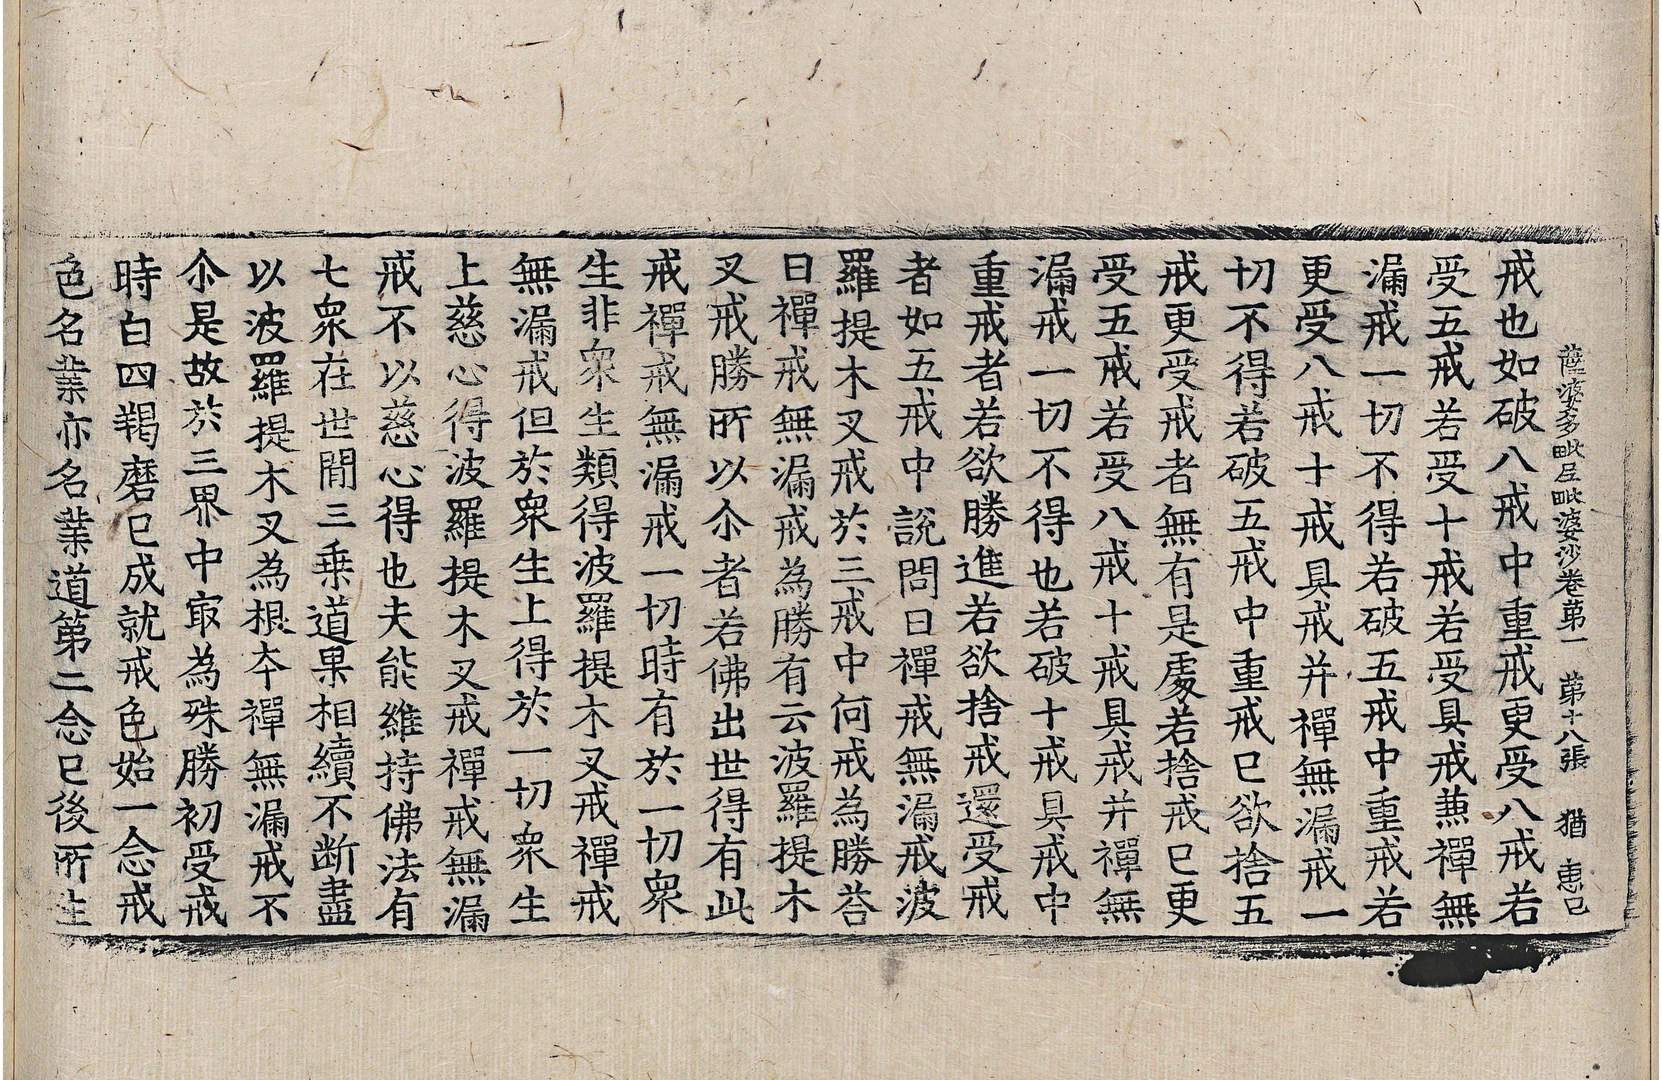 薩婆多毗尼毗婆沙卷第一 第十八張 猶 惠已
戒也如破八戒中重戒更受八戒若
受五戒若受十戒若受具戒兼禪無
漏戒一切不得若破五戒中重戒若
更受八戒十戒具戒并禪無漏戒一
切不得若破五戒中重戒已欲捨五
戒更受戒者無有是處若捨戒已更
受五戒若受八戒十戒具戒并禪無
漏戒一切不得也若破十戒具戒中
重戒者若欲勝進若欲捨戒還受戒
者如五戒中說問曰禪戒無漏戒波
羅提木叉戒於三戒中何戒為勝荅
曰禪戒無漏戒為勝有云波羅提木
叉戒勝所以尒者若佛出世得有此
戒禪戒無漏戒一切時有於一切衆
生非衆生類得波羅提木叉戒禪戒
無漏戒但於衆生上得於一切衆生
上慈心得波羅提木叉戒禪戒無漏
戒不以慈心得也夫能維持佛法有
七衆在世閒三乗道果相續不断盡
以波羅提木叉為根夲禪無漏戒不
尒是故於三界中㝡為殊勝初受戒
時白四羯磨已成就戒色始一念戒
色名業亦名業道第二念已後所生